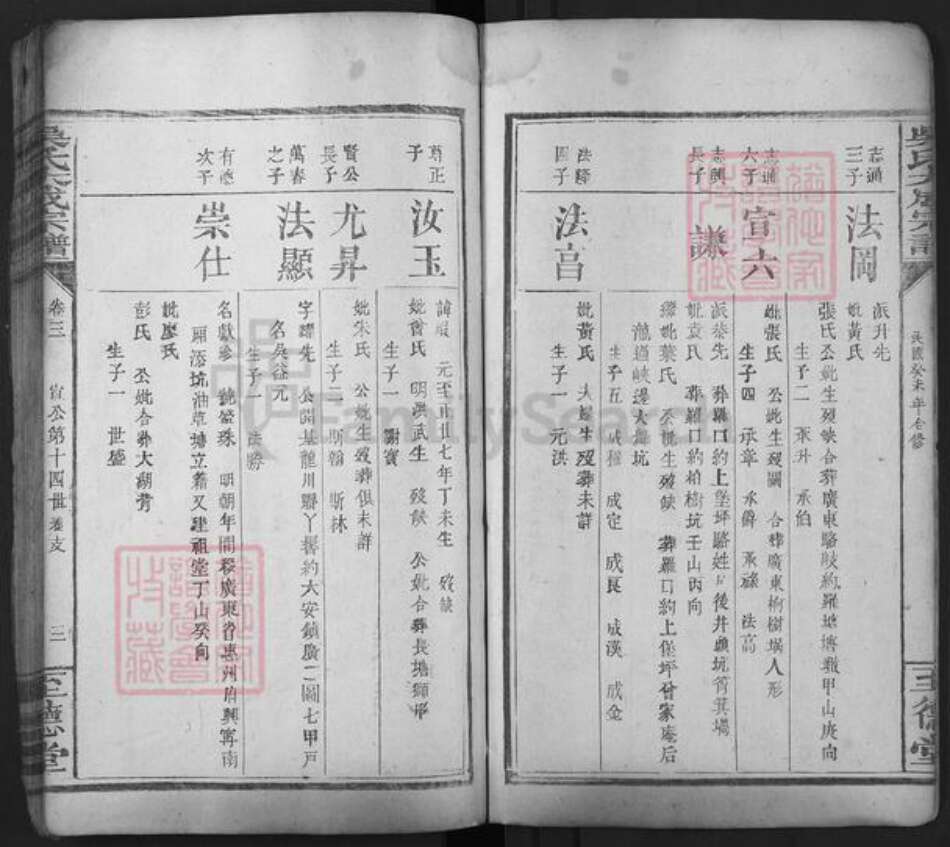 吳氏大成宗譜
民國癸未年合修
至德堂
志通
三子
法岡
派升先
妣黃氏
張氏公妣生歿缺合葬廣東駱歧約羅塘塘墩甲山庚向
生子二 承升 承伯
志通
六子
宣六
妣張氏 公妣生歿闕 合葬廣東榆樹塅人形
生子四 承章 承爵 承祿 法高
志興
長子
謙
派泰先 葬羅口約上堡坪駱姓屋後井頭坑筲箕塲
妣袁氏 葬羅口約柏樹坑壬山丙向
繼妣葉氏 公妣生歿缺 葬羅口約上堡坪曾家庵后
龍道峽邊大墈坑
生子五 成種 成定 成民 成漢 成金
法
四子
法高
妣黃氏 夫婦生歿葬未詳
生子一 元洪
尊正
子
汝玉
諱 元至正廿七年丁未生 歿缺
妣曾氏 明洪武生 歿缺 公妣合葬長塘獅形
生子一 謝寶
賢公
長子
尤昇
妣朱氏 公妣生歿葬俱未詳
生子二 斯翰 斯林
萬春
之子
法顯
字曜先 公開基龍川縣丫髻約大安鎮廣二圖七甲戶
名吳益元
生子一 法勝
有德
次子
崇仕
名獻珍 號螢珠 明朝年間移廣東省惠州府興寧南
廂添坑油草塘立籍又建祖堂丁山癸向
妣廖氏
彭氏 公妣合葬大湖背
生子一 世盛
吳氏大成宗譜
卷三
宣公第十四世 支
三
至德堂